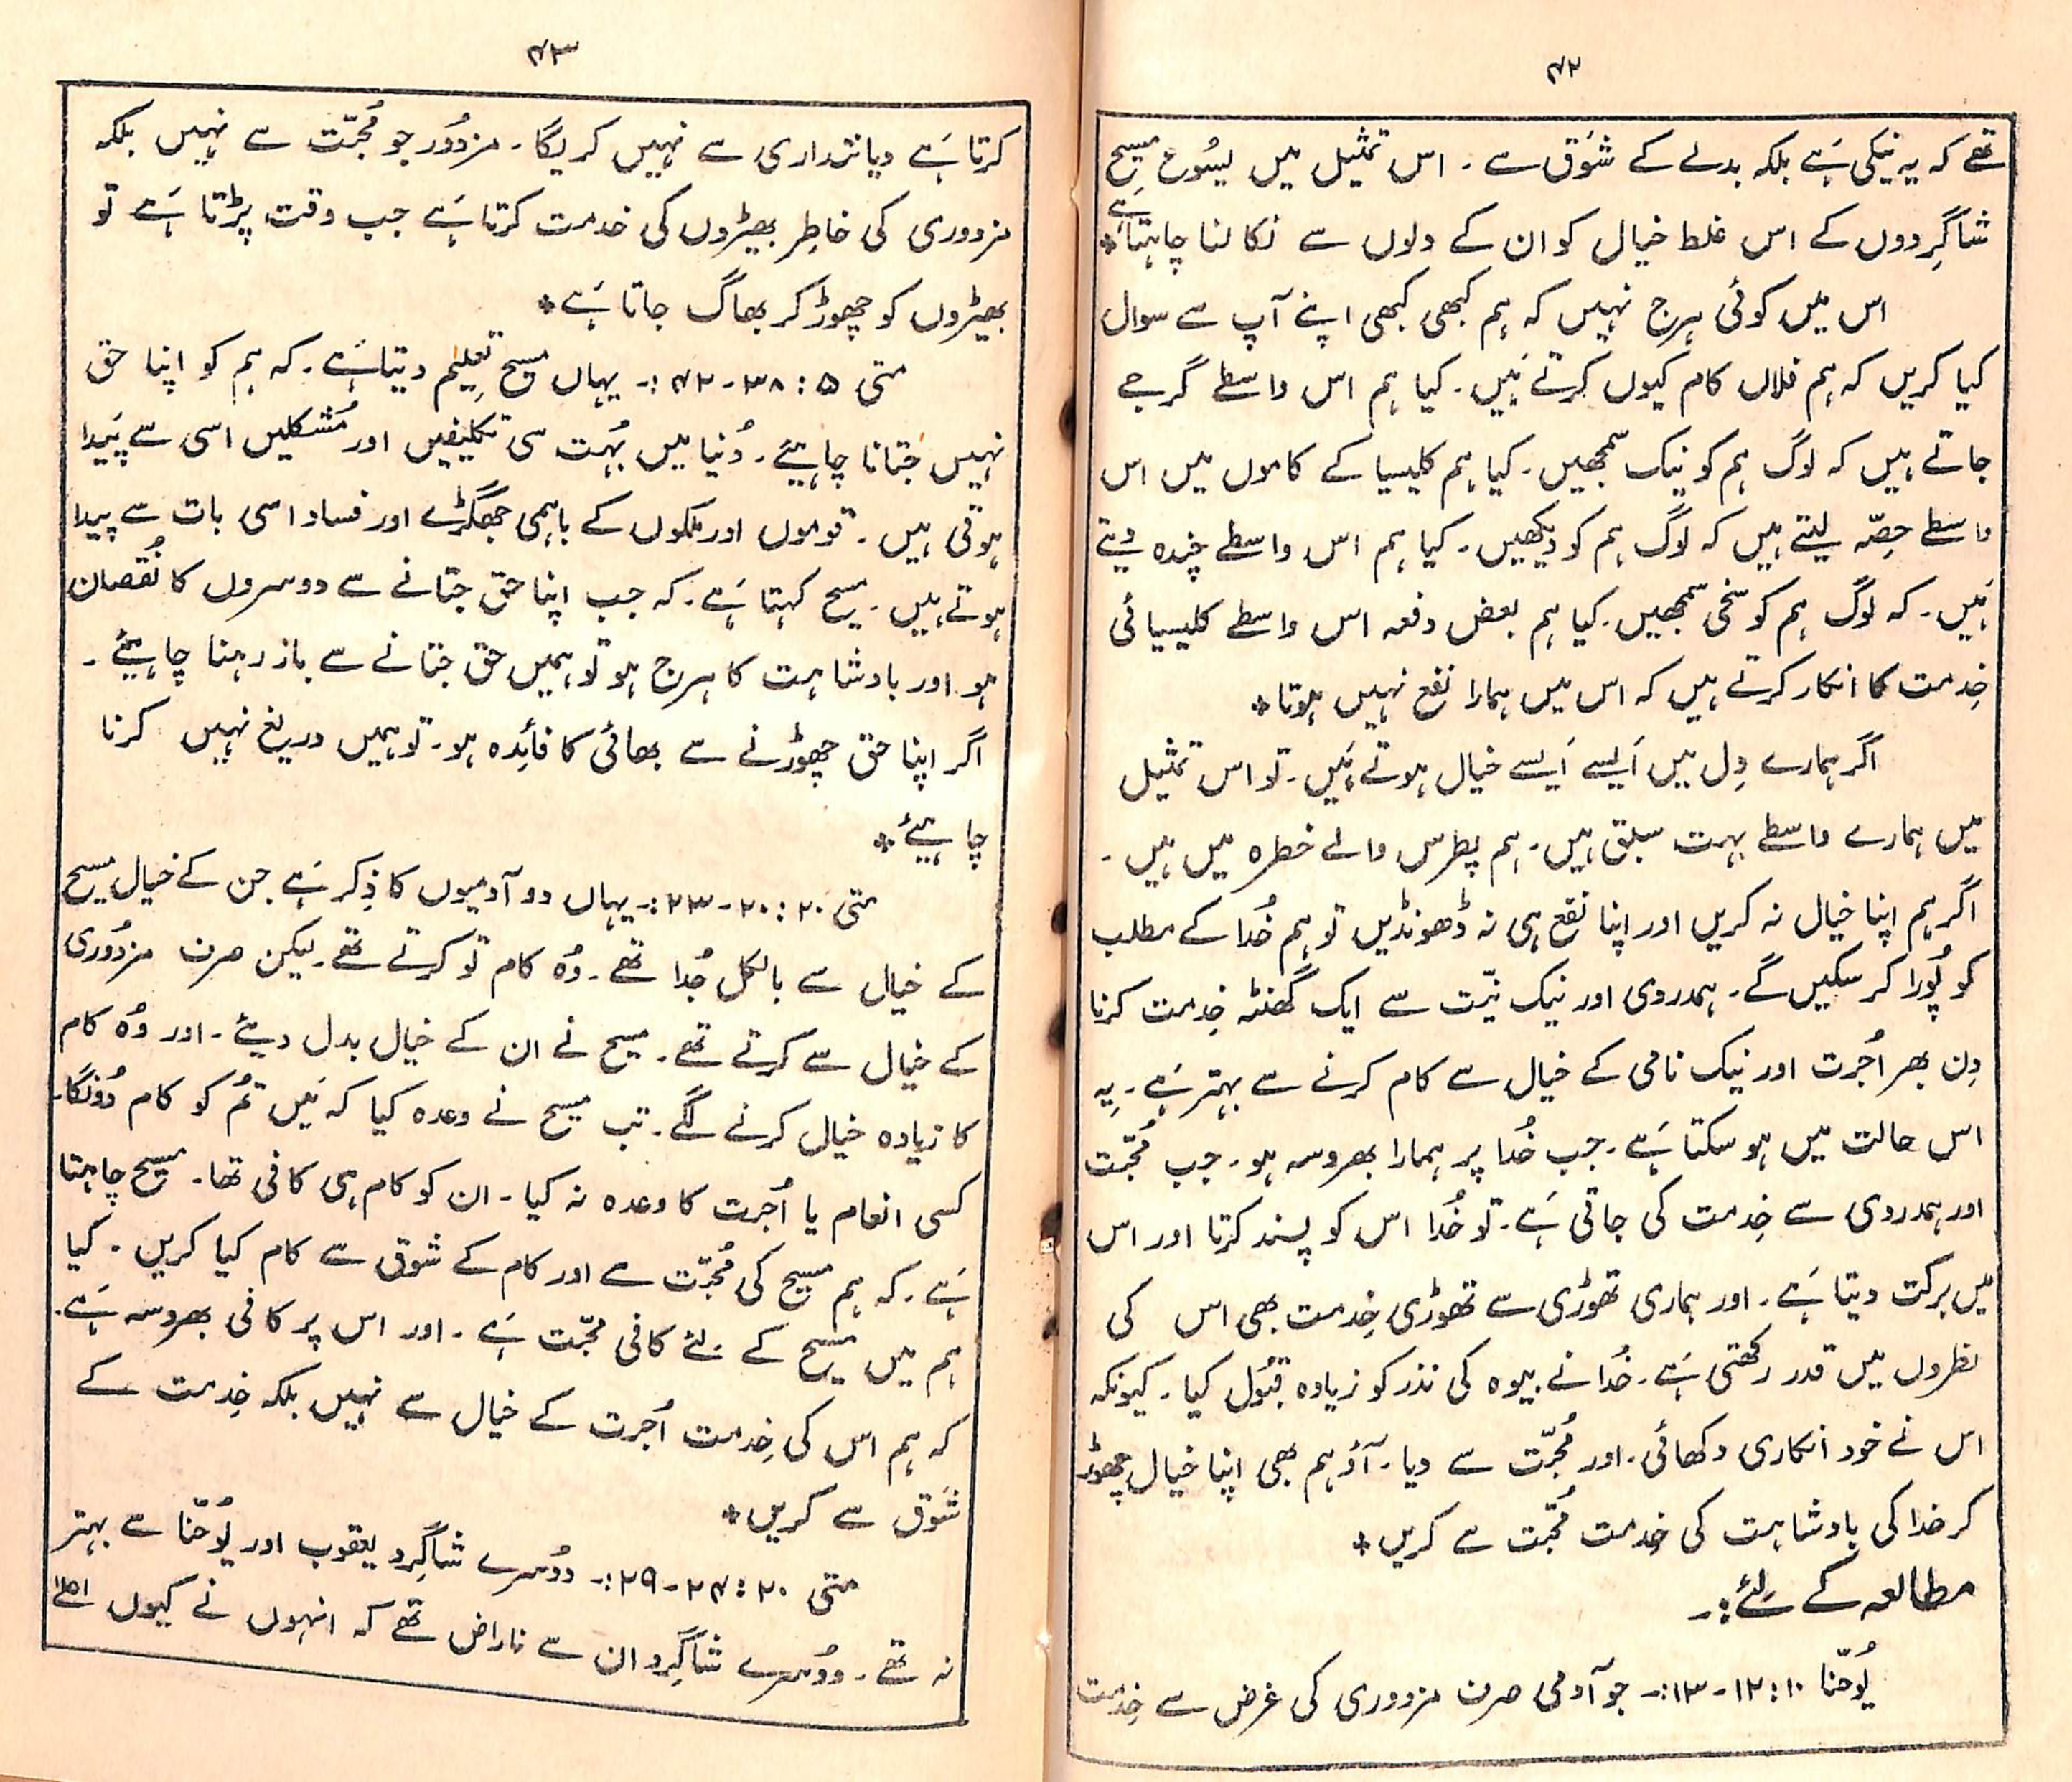 ۴۲
تھے کہ یہ نیکی ہَے بلکہ بدلے کے شَوق سے ۔ اس تمثیل میں یسُوع مسِیح
شاگِردوں کے اس غلط خیال کو ان کے دلوں سے نکالنا چاہتا ہے *
اس میں کوئی ہرج نہیں کہ ہم کبھی کبھی اپنے آپ سے سوال
کیا کریں کہ ہم فلاں کام کیوں کرتے ہَیں ۔ کیا ہم اس واسطے گرجے
جاتے ہیں کہ لوگ ہم کو نیک سمجھیں ۔ کیا ہم کلیسیا کے کاموں میں اس
واسطے حِصّہ لیتے ہیں کہ لوگ ہم کو دیکھیں ۔ کیا ہم اس واسطے چندہ دیتے
ہَیں ۔ کہ لوگ ہم کو سخی سمجھیں ۔ کیا ہم بعض دفعہ اس واسطے کلیسیائی
خِدمت کا انکار کرتے ہیں کہ اس میں ہمارا نفع نہیں ہوتا *
اگر ہمارے دِل میں اَیسے اَیسے خیال ہوتے ہَیں ۔ تو اس تمثیل
میں ہمارے واسطے بہت سبق ہیں ۔ ہم پطرس والے خطرہ میں ہیں ۔
اگر ہم اپنا خیال نہ کریں اور اپنا نفع ہی نہ ڈھونڈیں تو ہم خُدا کے مطلب
کو پُورا کر سکیں گے ۔ ہمدردی اور نیک نیّت سے ایک گھنٹہ خِدمت کرنا
دِن بھر اُجرت اور نیک نامی کے خیال سے کام کرنے سے بہتر ہَے ۔ یہ
اس حالت میں ہو سکتا ہَے ۔ جب خُدا پر ہمارا بھروسہ ہو ۔ جب مُحبّت
اور ہمدردی سے خِدمت کی جاتی ہَے ۔ تو خُدا اس کو پسند کرتا اور اس
میں برکت دیتا ہَے ۔ اور ہماری تھوڑی سے تھوڑی خِدمت بھی اس کی
نظروں میں قدر رکھتی ہَے ۔ خُدا نے بیوہ کی نذر کو زیادہ قبُول کیا ۔ کیونکہ
اس نے خود انکاری دکھائی ۔ اور مُحبّت سے دیا ۔ آؤ ہم بھی اپنا خیال چھوڑ
کر خدا کی بادشاہت کی خِدمت مُحبّت سے کریں *
مطالعہ کے لِئے :۔
یُوحنّا ۱۰ : ۱۲ ۔ ۱۳ :۔ جو آدمی صرف مزدوری کی غرض سے خِدمت
۴۳
کرتا ہَے دیانتداری سے نہیں کریگا ۔ مزدُور جو مُحبّت سے نہیں بلکہ
مزدوری کی خاطِر بھیڑوں کی خدمت کرتا ہَے جب وقت پڑتا ہَے تو
بھیڑوں کو چھوڑ کر بھاگ جاتا ہَے *
متی ۵ : ۳۸ ۔ ۴۲ :۔ یہاں مسیح تعلِیم دیتا ہَے ۔ کہ ہم کو اپنا حق
نہیں جتانا چاہیئے ۔ دُنیا میں بُہت سی تکلیفیں اور مُشکلیں اسی سے پَیدا
ہوتی ہیں ۔ قوموں اور ملکوں کے باہمی جھگڑے اور فساد اسی بات سے پیدا
ہوتے ہیں ۔ مسیح کہتا ہَے ۔ کہ جب اپنا حق جتانے سے دوسروں کا نُقصان
ہو اور بادشاہت کا ہرج ہو تو ہمیں حق جتانے سے باز رہنا چاہیئے ۔
اگر اپنا حق چھوڑنے سے بھائی کا فائِدہ ہو ۔ تو ہمیں دریغ نہیں کرنا
چاہیئے *
متی ۲۰ : ۲۰ ۔ ۲۳ :۔ یہاں دو آدمیوں کا ذِکر ہَے جن کے خیال مسیح
کے خیال سے بالکل جُدا تھے ۔ وُہ کام تو کرتے تھے ۔ لیکن صرف مزدُوری
کے خیال سے کرتے تھے ۔ مسیح نے ان کے خیال بدل دیئے ۔ اور وُہ کام
کا زیادہ خیال کرنے لگے ۔ تب مسیح نے وعدہ کیا کہ مَیں تُم کو کام دُونگا ۔
کسی انعام یا اُجرت کا وعدہ نہ کیا ۔ ان کو کام ہی کافی تھا ۔ مسیح چاہتا
ہَے ۔ کہ ہم مسیح کی مُحبّت سے اور کام کے شوق سے کام کیا کریں ۔ کیا
ہم میں مسیح کے لئے کافی محبّت ہَے ۔ اور اس پر کافی بھروسہ ہَے ۔
کہ ہم اس کی خِدمت اُجرت کے خیال سے نہیں بلکہ خِدمت کے
شَوق سے کریں *
متی ۲۰ : ۲۴ ۔ ۲۹ :۔ دُوسرے شاگِرد یعقوب اور یُوحنّا سے بہتر
نہ تھے ۔ دُوسرے شاگِرد ان سے ناراض تھے کہ انہوں نے کیوں اعلےٰ